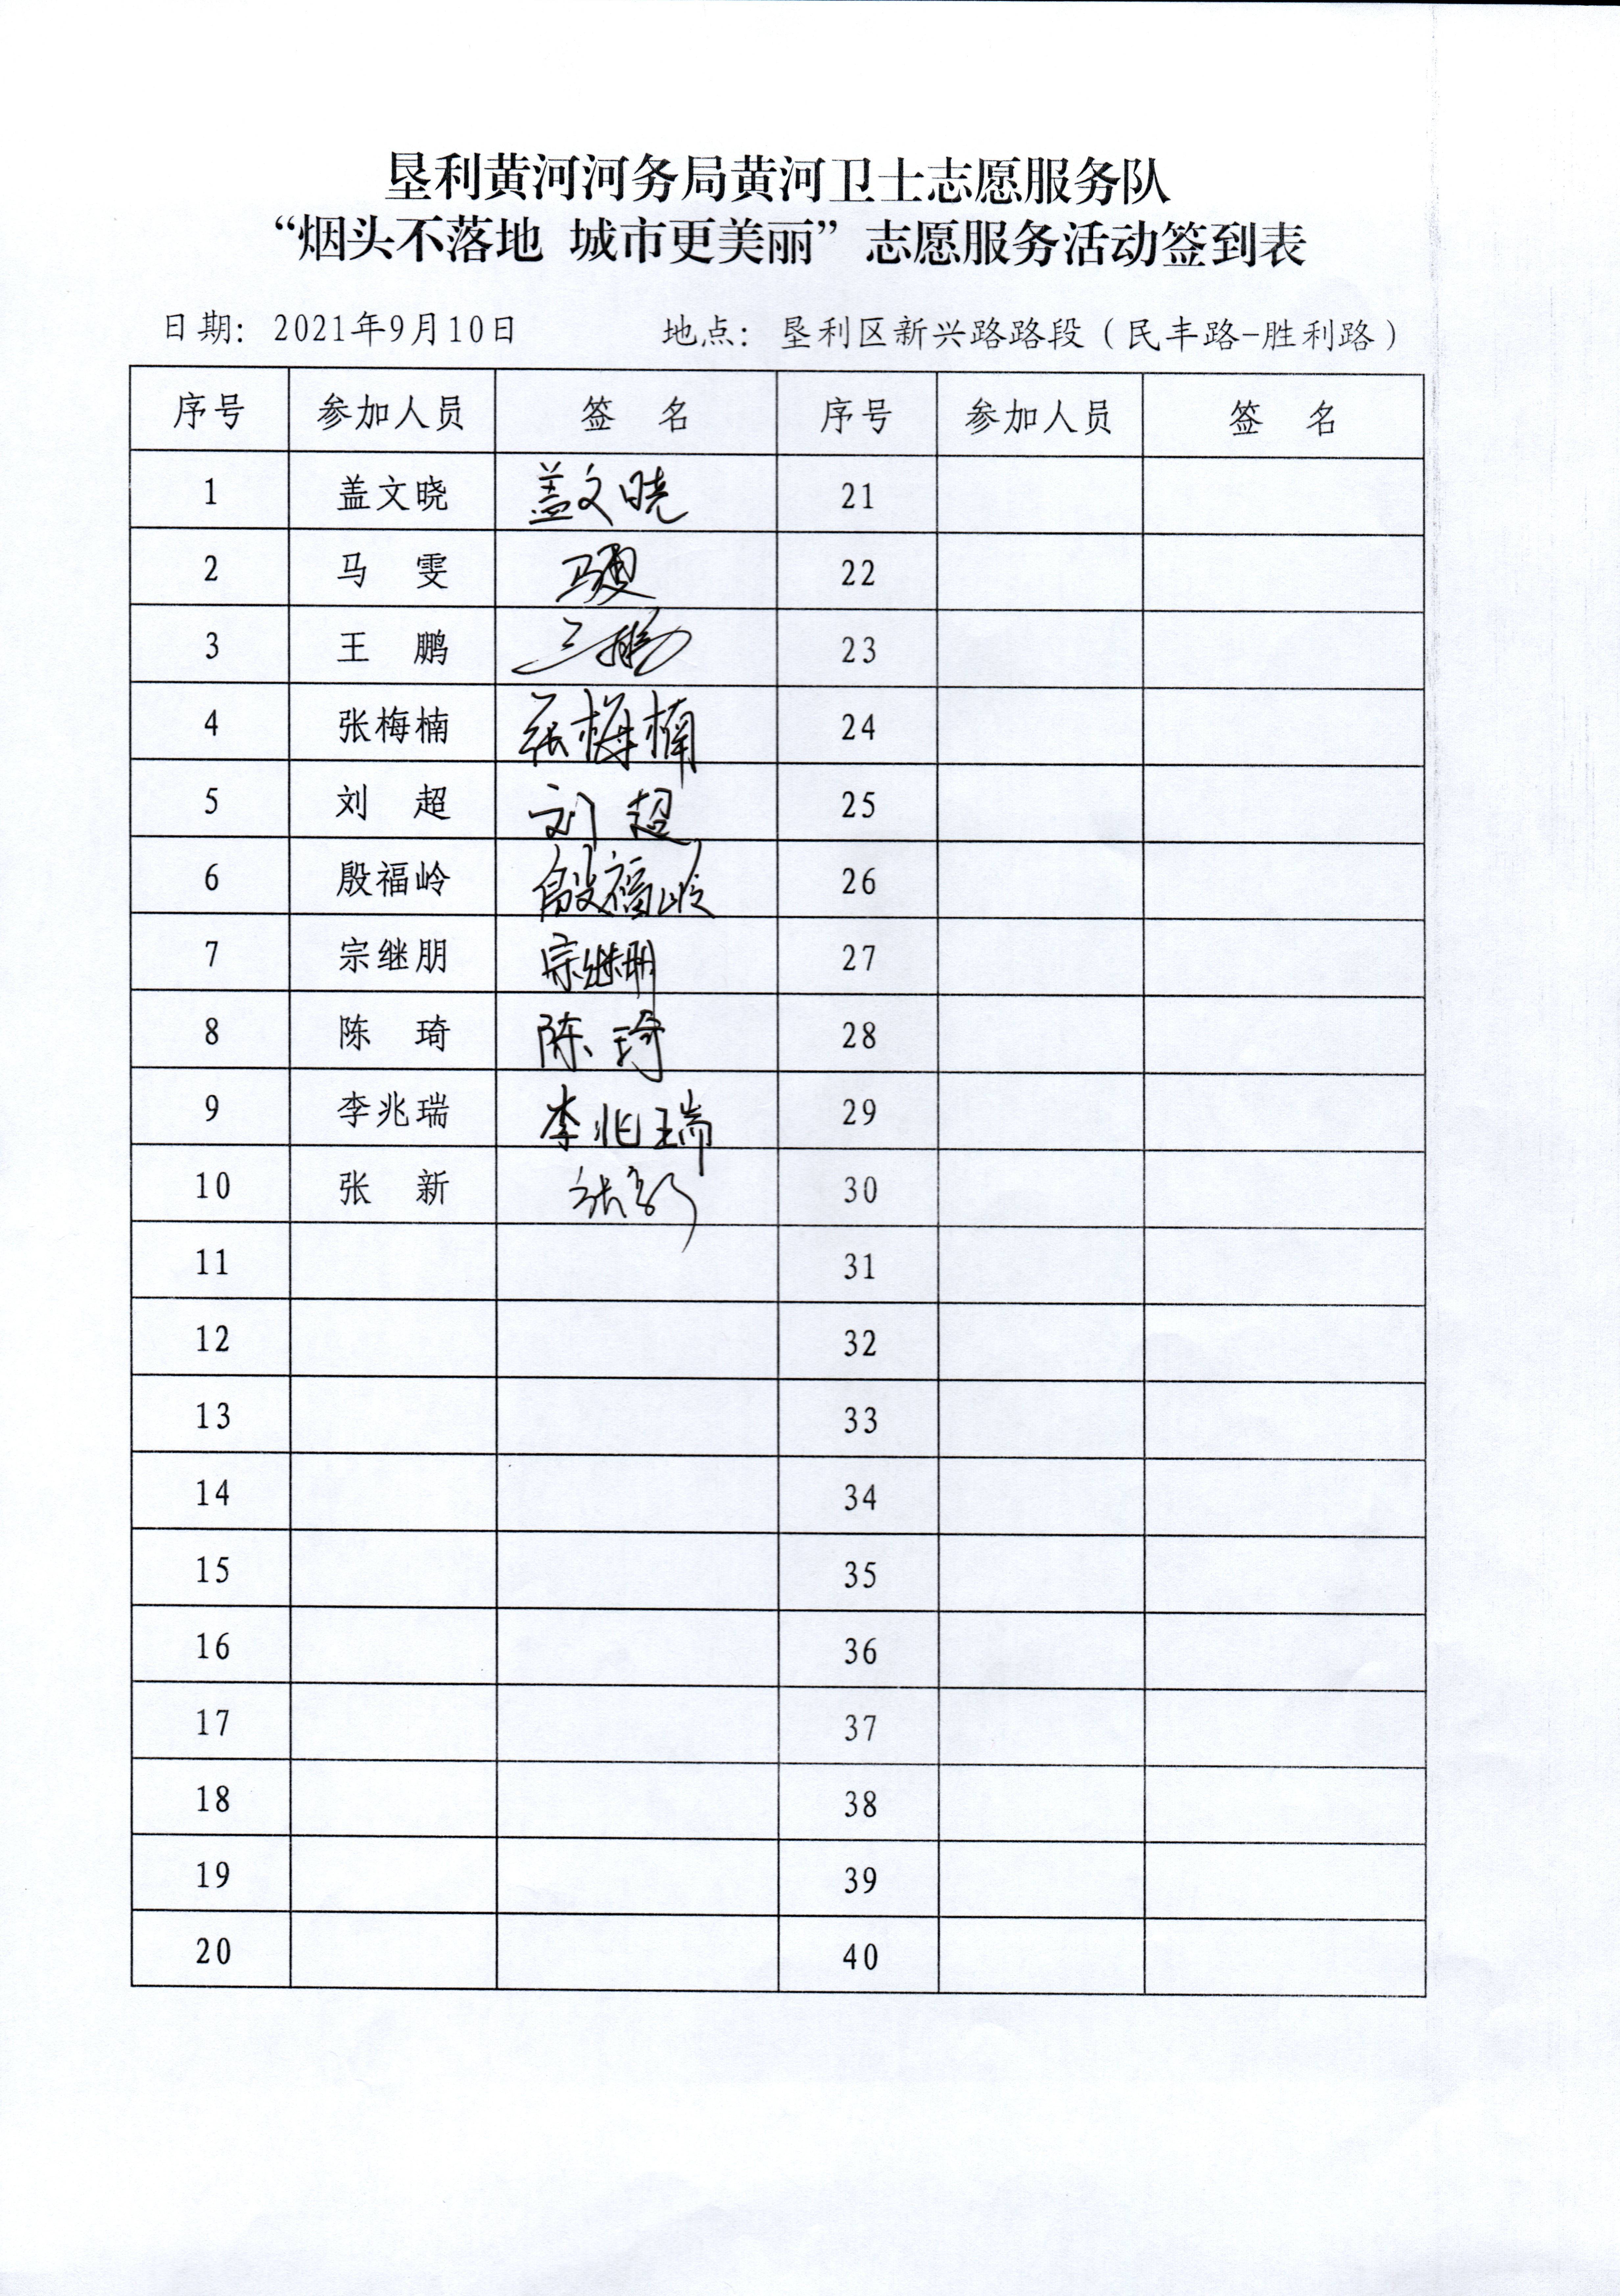 垦利黄河河务局黄河卫士志愿服务队
“烟头不落地 城市更美丽”志愿服务活动签到表
日期：2021年9月10日 地点：垦利区新兴路路段（民丰路-胜利路）
序号 参加人员 签 名 序号 参加人员 签 名
1 盖文晓 盖文晓 21
2 马 雯 马雯 22
3 王 鹏 王鹏 23
4 张梅楠 张梅楠 24
5 刘 超 刘超 25
6 殷福岭 殷福岭 26
7 宗继朋 宗继朋 27
8 陈 琦 陈琦 28
9 李兆瑞 李兆瑞 29
10 张 新 张新 30
11 31
12 32
13 33
14 34
15 35
16 36
17 37
18 38
19 39
20 40